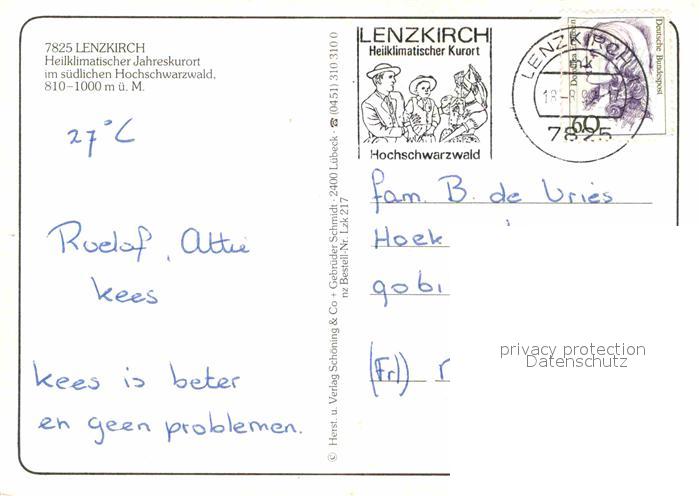 7825 LENZKIRCH
Heilklimatischer Jahreskurort
im südlichen Hochschwarzwald,
810–1000 m ü. M.
27°C
Roelof, Attie
kees
kees is beter
en geen problemen.
© Herst. u. Verlag Schöning & Co + Gebrüder Schmidt · 2400 Lübeck · ☎ (0451) 310 310 0
nz Bestell-Nr. Lzk 217
LENZKIRCH
Heilklimatischer Kurort
Hochschwarzwald
LENZKIRCH
7825
Deutsche Bundespost
60
fam. B. de Vries
Hoek
gobi
(Frl)
privacy protection
Datenschutz